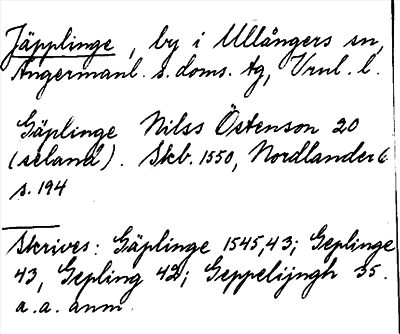 Jäpplinge, by i Ullångers sn,
Ångermanl. s. doms. tg, Vrnl. l.
Gäplinge Nilss Östenson 20
(seland). Skb. 1550, Nordlander 6
s. 194
Skrives: Gäplinge 1545, 43; Geplinge
43, Gepling 42; Geppelijngh 35.
a. a. anm.